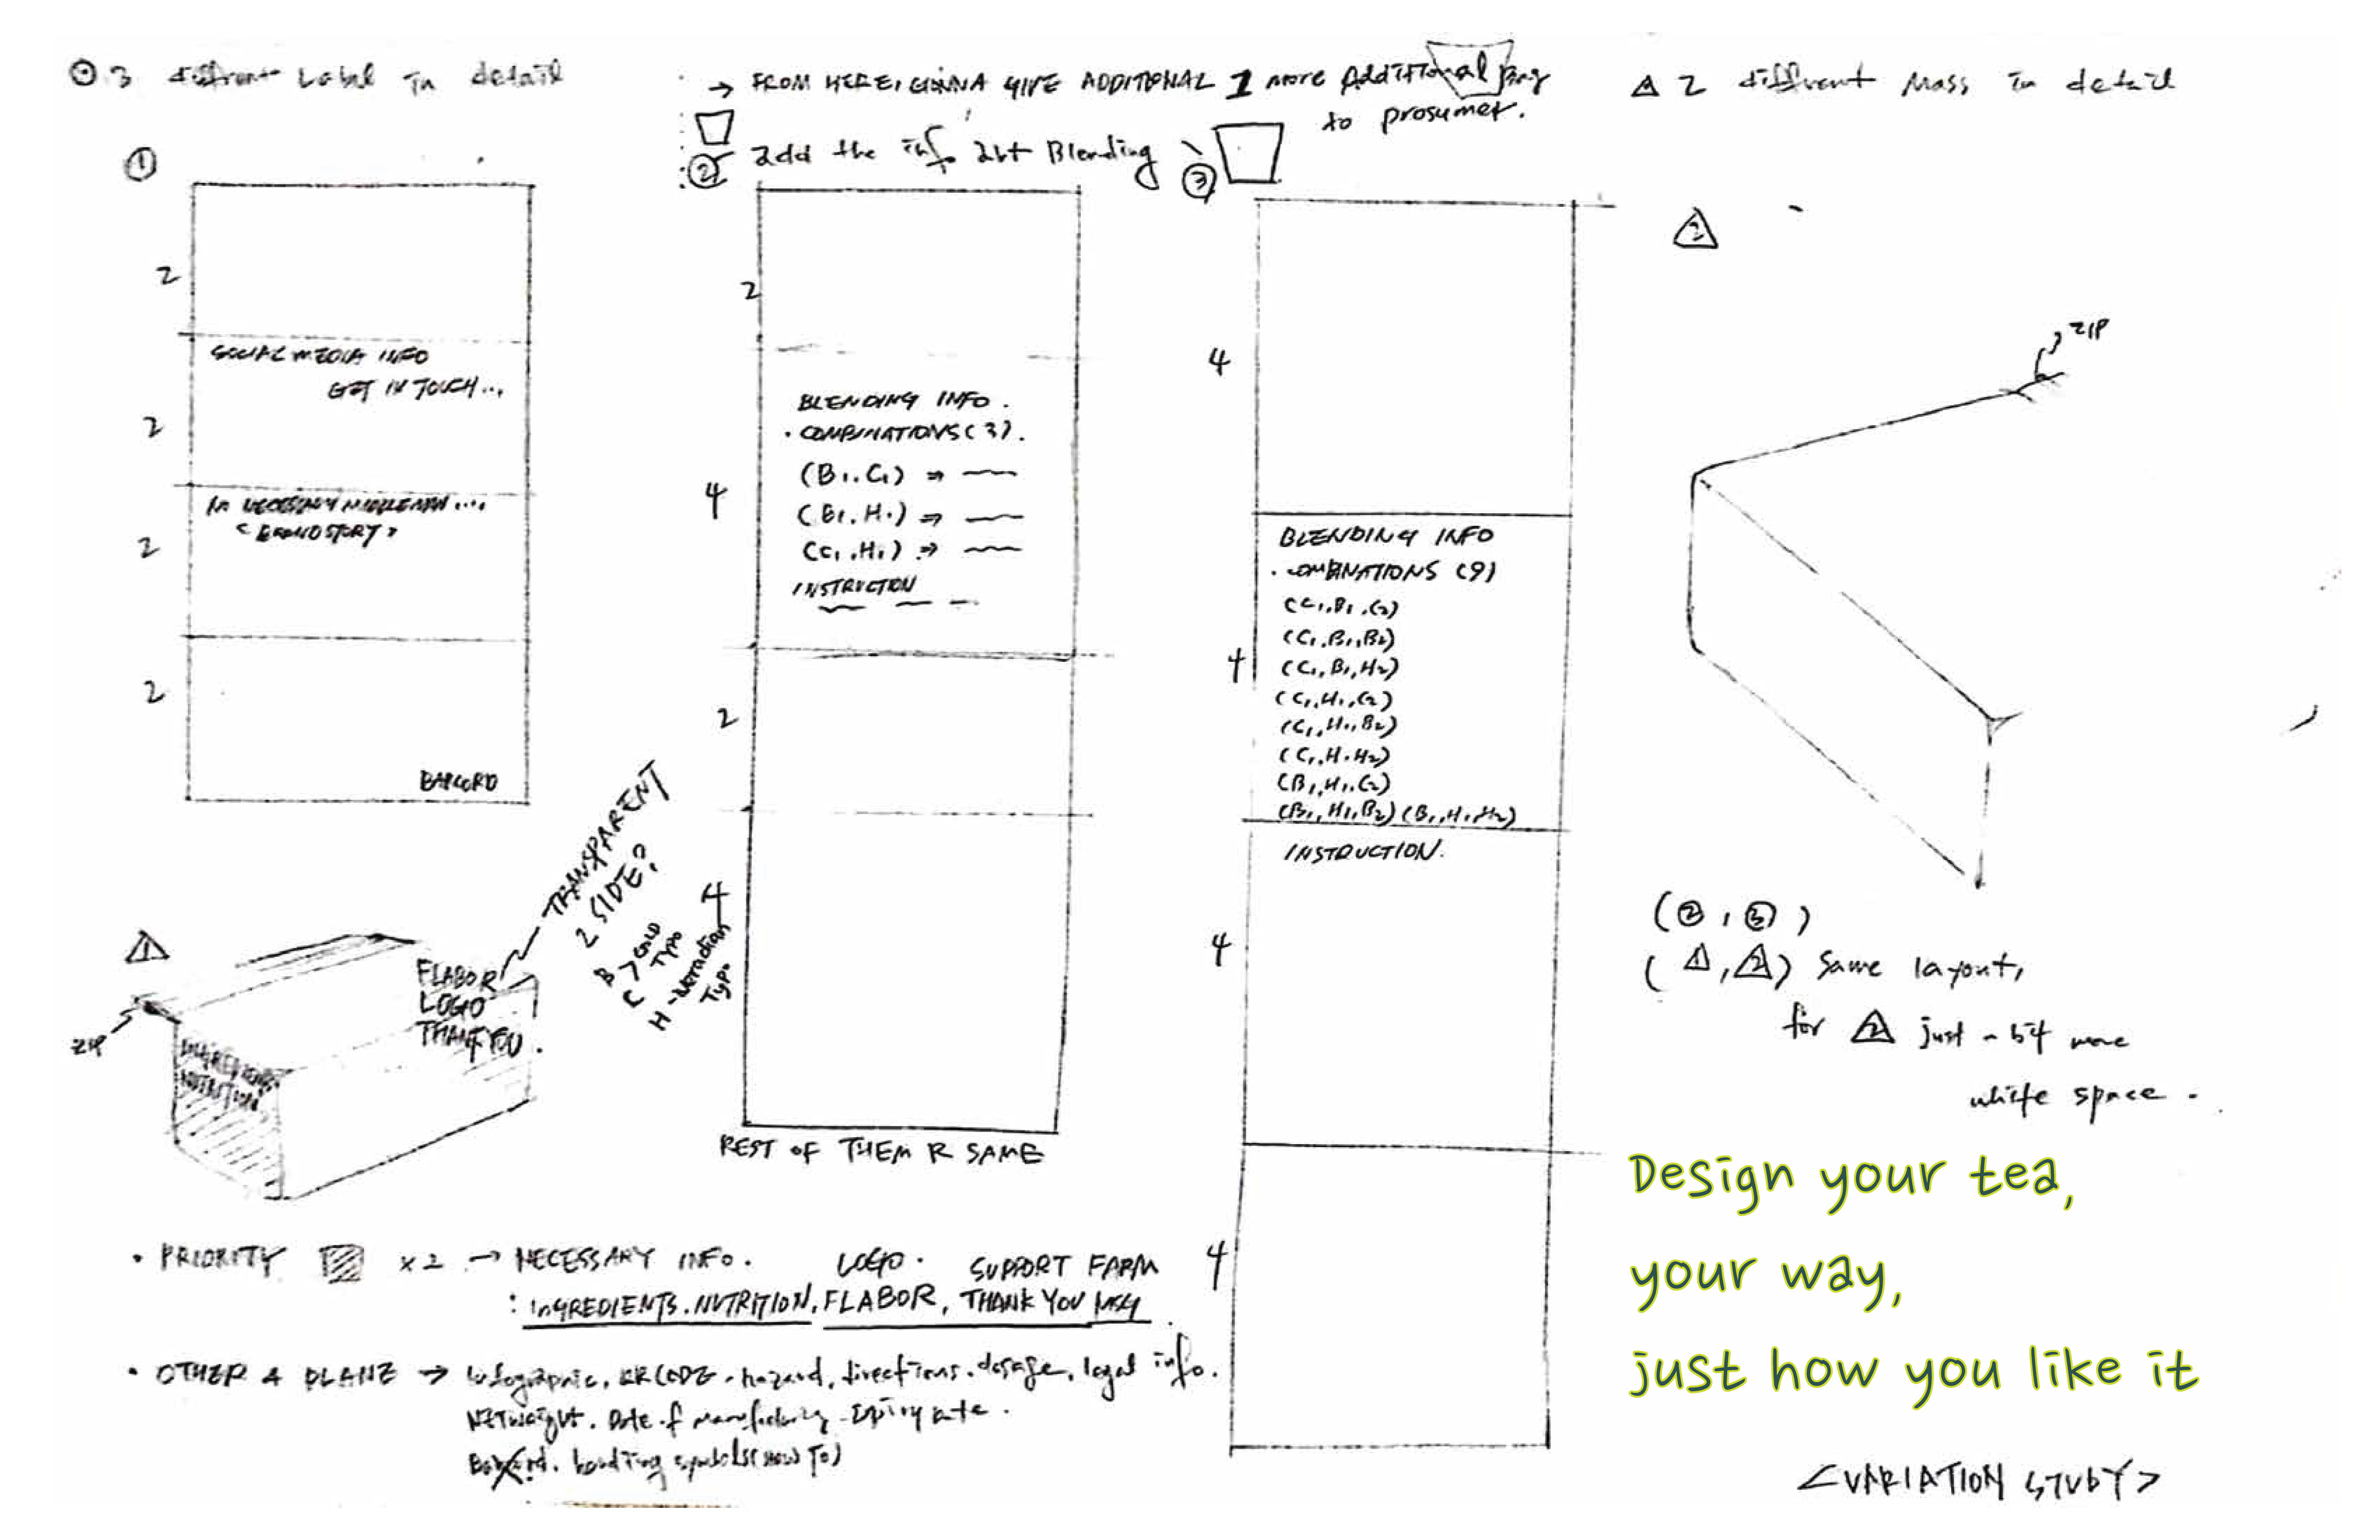 3 diffrent Label in detail
→ FROM HERE, GONNA GIVE ADDITIONAL 1 more Additional
to prosumer.
2 different Mass in detail
①
② add the info abt Blending
③
2
2
2
2
2
SOCIAL MEDIA INFO
GET IN TOUCH...
IN NECESSARY MIDDLEMAN ....
< BRAND STORY >
BARCORD
2
4
2
4
BLENDING INFO.
· COMBINATIONS (3).
(B1. C1) ⇒
(B1. H1) ⇒
(C1, H1) ⇒
INSTRUCTION
REST OF THEM R SAME
4
4
4
4
BLENDING INFO
· COMBINATIONS (9)
(C1, B1, C2)
(C1, B1, B2)
(C1, B1, H2)
(C1, H1, C2)
(C1, H1, B2)
(C1, H1, H2)
(B1, H1, C2)
(B1, H1, B2) (B1, H1, H2)
INSTRUCTION.
ZIP
1
TRANSPARENT
2 SIDE?
B
C
> GOLD
TYPO
H -
Typo
FLABOR
LOGO
THANK YOU.
ZIP
INGREDIENTS
NUTRITION
(②, ③)
(1, 2) Same layout,
for 2 just a bit more
white space.
· PRIORITY x2 → NECESSARY INFO. LOGO. SUPPORT FARM
: INGREDIENTS. NUTRITION, FLABOR, THANK YOU MSG.
· OTHER 4 PLANE → Infographic, QRCODE, hazard, directions. dosage, legal info.
NETweight. Date of manufacturing. Expiry date.
handling symbols (HOW TO)
Design your tea,
your way,
just how you like it
<VARIATION STUDY>